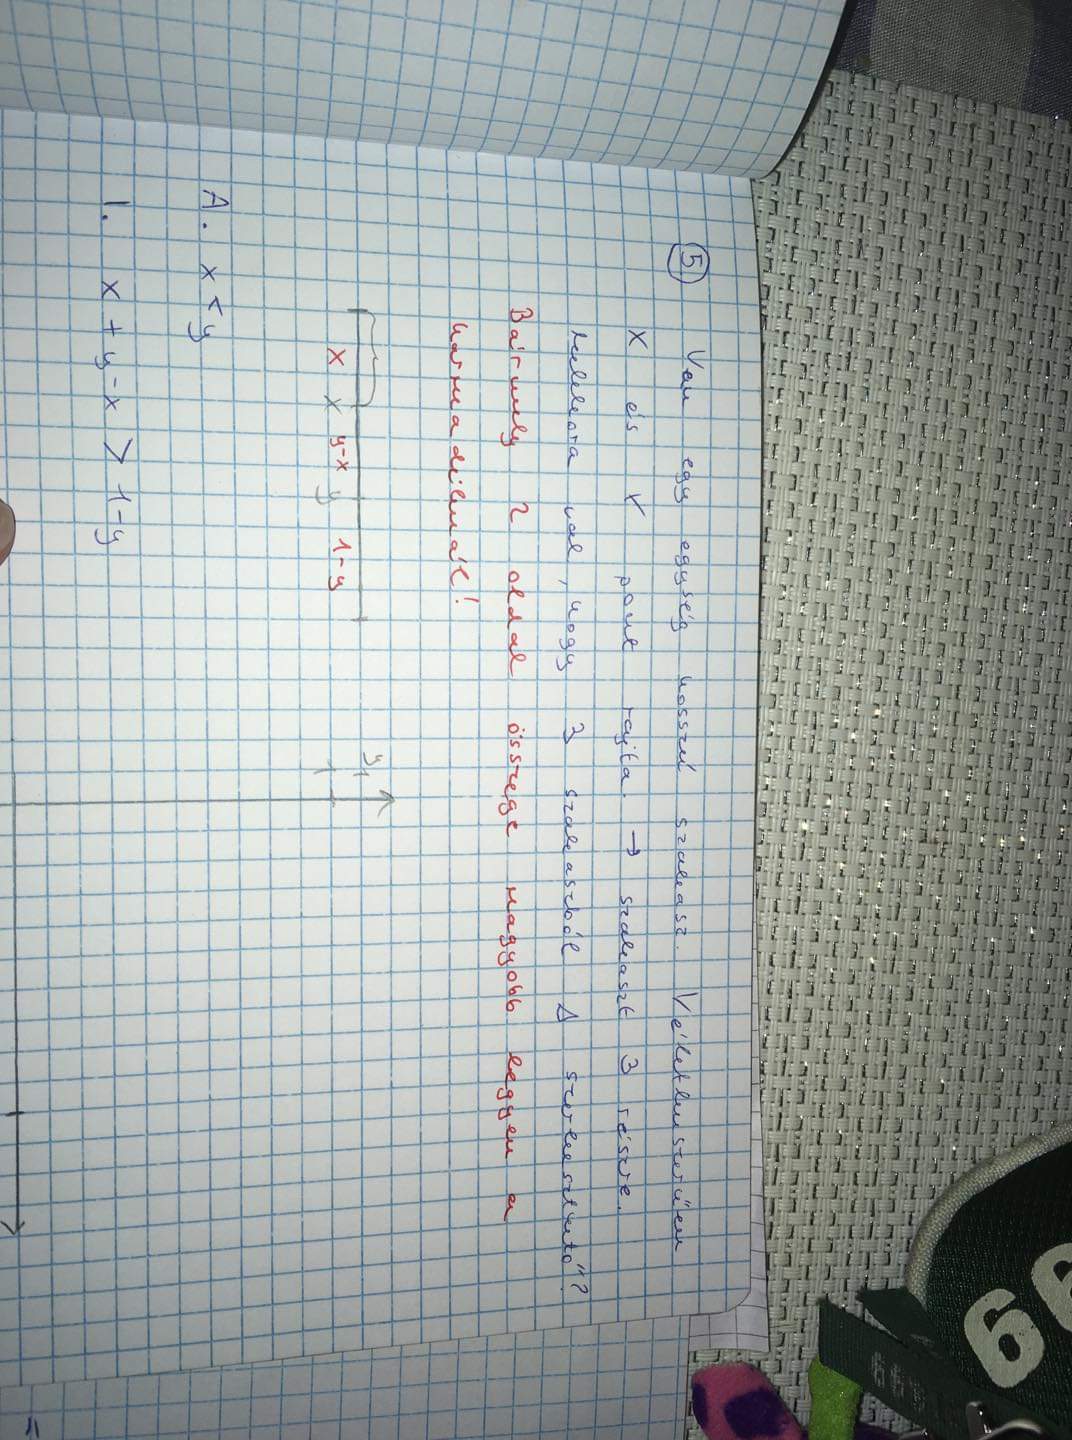 ⑤ Van egy egység hosszú szakasz. Véletlenszerűen
X és Y pont rajta. → szakaszt 3 részre.
Mekkora val, hogy 3 szakaszból Δ szerkeszthető?
Bármely 2 oldal összege nagyobb legyen a
harmadiknál!
x y-x 1-y
x y
y
1
A. x < y
1. x + y - x > 1 - y
66
=